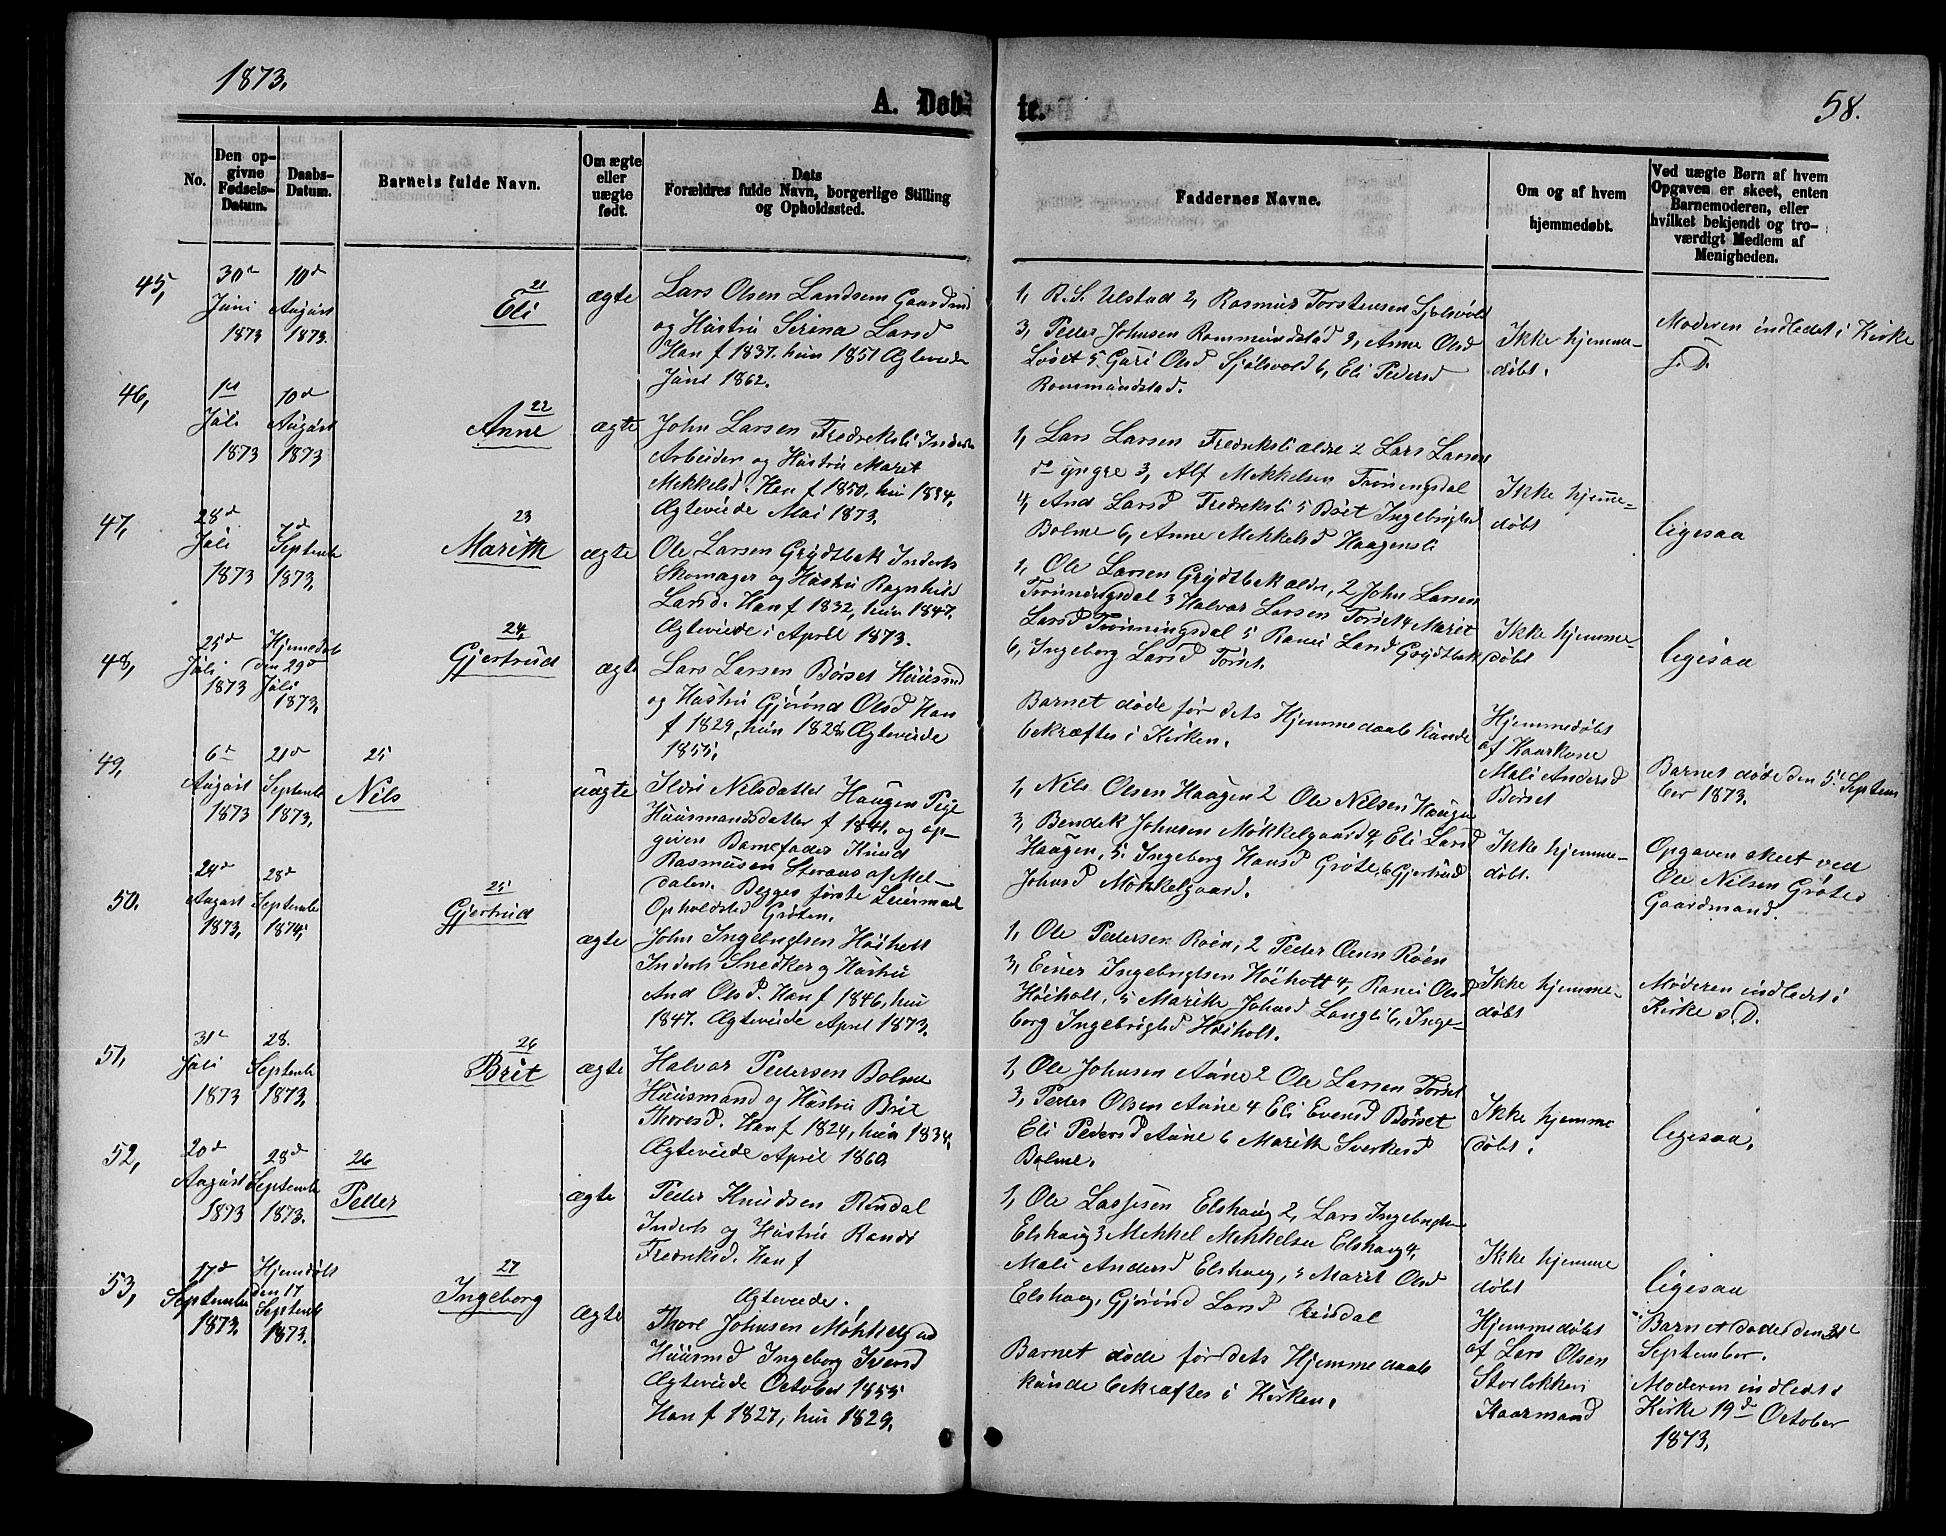 1873.
A. Døb-
te.
58.
No.
Den op-
givne
Fødsels-
Datum.
Daabs-
Datum.
Barnets fulde Navn.
Om ægte
eller
uægte
født.
Dets
Forældres fulde Navn, borgerlige Stilling
og Opholdssted.
Faddernes Navne.
Om og af hvem
hjemmedøbt.
Ved uægte Børn af hvem
Opgaven er skeet, enten
Barnemoderen, eller
hvilket bekjendt og tro-
værdigt Medlem af
Menigheden.
45,
30d
Juni
1873
10d
August
1873.
21
Eli
ægte
Lars Olsen Landsem Gaardmd
og Hustru Serina Larsd
Han f 1837. hun 1851 Ægteviede
Juni 1862.
1, R. S. Ulstad 2, Rasmus Torstensen Sjølsvold
3, Peder Johnsen Rommundstad 4, Anne Olsd
Løset 5. Guri Olsd Sjølsvold 6, Eli Pedersd
Rommundstad.
Ikke hjemme-
døbt.
Moderen indledet i Kirke
s. D.
46,
1st
Juli
1873
10d
August
1873
22
Anne
ægte
John Larsen Fredreksli Inderst
Arbeider og Hustru Maret
Mekkelsd. Han f 1850. hun 1834.
Ægteviede Mai 1873.
1, Lars Larsen Fredreksli ældre 2 Lars Larsen
do yngre 3, Alf Mekkelsen Trønningsdal
4, And Larsd Fredreksli 5 Brit Ingebrigtsd
Bolme 6, Anne Mekkelsd Haagensli
Ikke hjemme-
døbt
ligesaa
47,
28d
Juli
1873
7d
Septembr
1873.
23
Marith
ægte
Ole Larsen Grydtbak Inderst
Skomager og Hustru Ragnhild
Larsd. Han f 1832, hun 1847.
Ægteviede i April 1873.
1, Ole Larsen Grydtbek ældre, 2 John Larsen
Trønningsdal 3 Halvar Larsen Torset 4 Marit
Larsd Trønningsdal 5 Ranei Larsd Grydtbak
6, Ingeborg Larsd Torset.
Ikke hjemme-
døbt
ligesaa
48,
25d
Juli
1873
Hjemmedøbt
den 29d
Juli
1873.
24
Gjertrud
ægte
Lars Larsen Børset Huusmd
og Hustru Gjørønd Olsd Han
f 1829, hun 1828 Ægteviede
1855.
Barnet døde før dets Hjemmedaab kunde
bekræftes i Kirken.
Hjemmedøbt
af Kaarkone
Mali Andersd
Børset
Barnet døde den 5d Septem
ber 1873.
49,
6d
August
1873
21d
Septembr
1873.
25
Nils
uægte
Ildri Nilsdatter Haugen Pige
Huusmandsdatter f 1841. og op-
given Barnefader Knud
Rasmusen Steraas af Mel-
dalen. Begges første Leiermaal
Opholdsted Grøten.
1, Nils Olsen Haugen 2 Ole Nilsen Haugen
3, Bendek Johnsen Mokkelgaard 4, Eli Larsd
Haugen, 5. Ingeborg Hansd Grøte, 6 Gjertrud
Johnsd Mokkelgaard.
Ikke hjemme-
døbt.
Opgaven skeet ved
Ole Nilsen Grøte
Gaardmand.
50.
24d
August
1873,
28d
Septembr
1874,
25
Gjertrud
ægte
John Ingebrigtsen Høiholt
Inderst Snedker og Hustru
And Olsd. Han f 1846, hun
1847. Ægteviede April 1873.
1, Ole Pedersen Røen, 2 Peder Olsen Røen
3, Einer Ingebrigtsen Høiholt 4, Ranei Olsd
Høiholt, 5 Marith Johnsd Langli 6, Inge-
borg Ingebrigtsd Høiholt.
Ikke hjemme-
døbt
Moderen indledet i
Kirke s. D.
51,
31d
Juli
1873
28.
Septembr
1873.
26
Brit
ægte
Halvar Pedersen Bolme
Huusmand og Hustru Brit
Thoresd. Han f 1824, hun 1834,
Ægteviede April 1860
1, Ole Johnsen Aune 2 Ole Larsen Torset
3, Peder Olsen Aune 4 Eli Evensd Børset
Eli Pedersd Aune 6 Marith Sverkesd
Bolme.
Ikke hjemme
døbt.
ligesaa,
52,
20d
August
1873
28d
Septembr
1873.
26
Peder
ægte
Peder Knudsen Rindal
Inderst og Hustru Randi
Fredriksd. Han f
Ægteviede.
1, Ole Lassesen Elshaug 2, Lars Ingebrigtsen
Elshaug 3 Mekkel Mekkelsen Elshaug 4,
Mali Andersd Elshaug, 5 Marit Olsd
Elshaug, Gjørønd Larsd Rindal
Ikke hjemme
døbt
ligesaa
53,
17d
September
1873.
Hjemdøbt
den 17
Septembr
1873.
27
Ingeborg
ægte
Thore Johnsen Mokkelgaard
Huusmd Ingeborg Iversd
Ægteviede October 1855
Han f 1827, hun 1829.
Barnet døde før dets Hjemmedaab
kunde bekræftes i Kirken.
Hjemmedøbt
af Lars Olsen
Storløkken
Kaarmand
Barnet døde den
September.
Moderen indledt i
Kirke 19d October
1873,